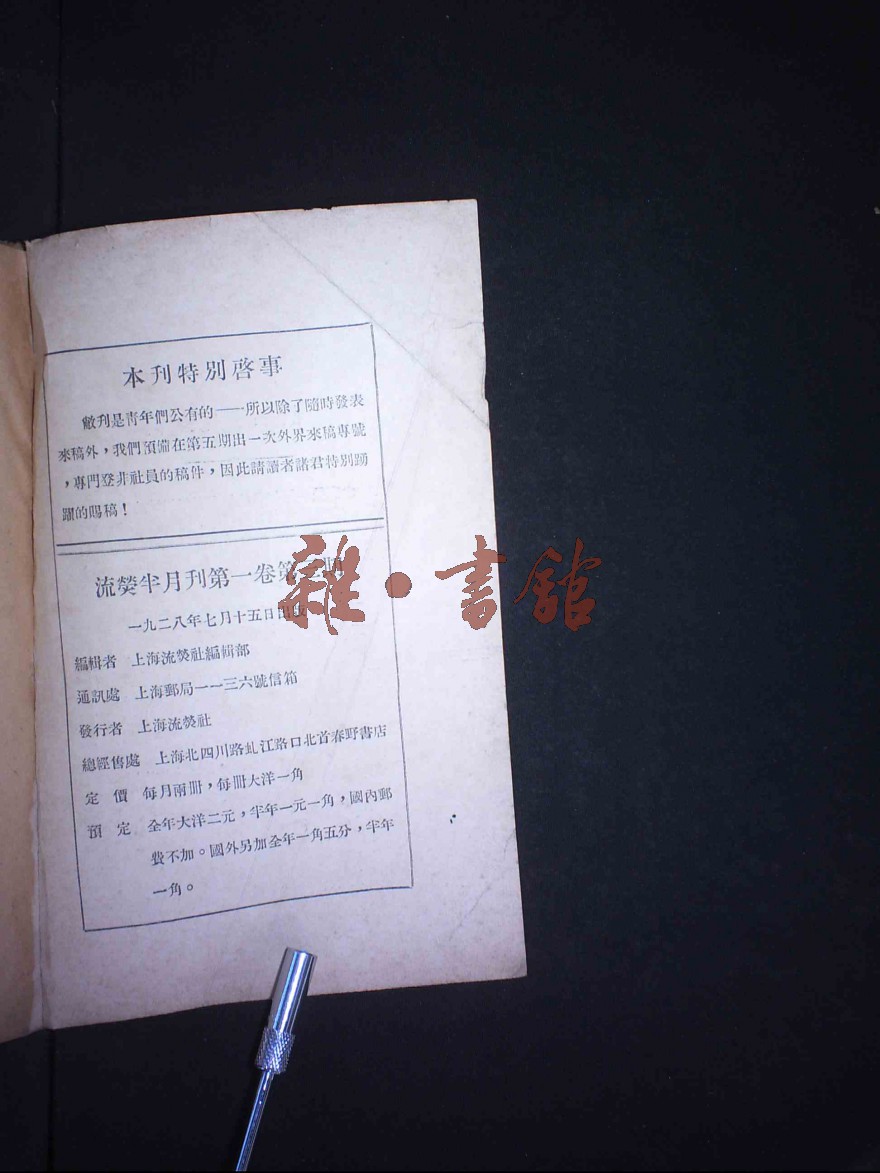 本刊特別啓事
敝刊是青年們公有的——所以除了隨時發表
來稿外，我們預備在第五期出一次外界來稿專號
，專門登非社員的稿件，因此請讀者諸君特別踴
躍的賜稿！
流熒半月刊第一卷第期
一九二八年七月十五日出版
編輯者　上海流熒社編輯部
通訊處　上海郵局一一三六號信箱
發行者　上海流熒社
總經售處　上海北四川路虬江路口北首春野書店
定　價　每月兩冊，每冊大洋一角
預　定　全年大洋二元，半年一元一角，國內郵
費不加。國外另加全年一角五分，半年
一角。
雜·書館